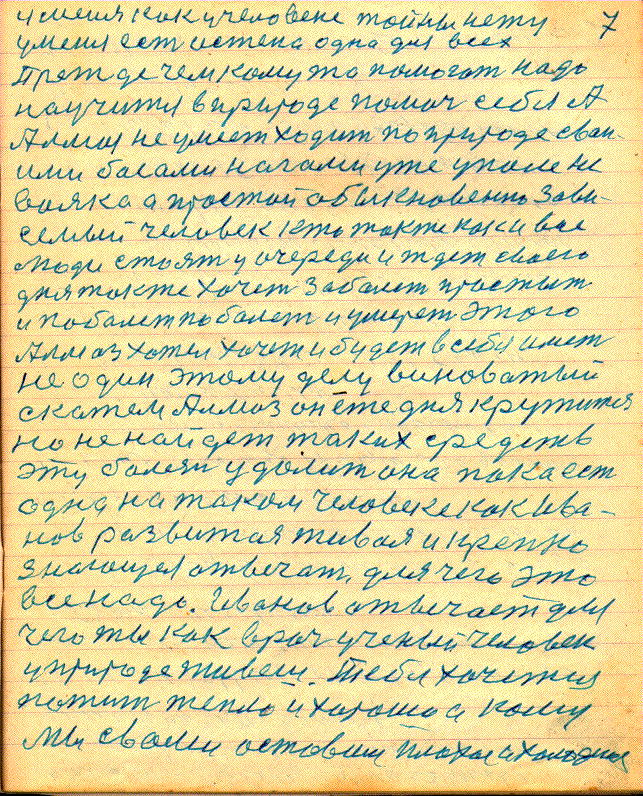 7
у меня как у человека тайны нету
у меня ест истена одна для всех
Прет де чем кому та помогат надо
научится в природе помоч себя А
Алмаз не умеет ходит по природе сваи-
ими босами нагами уже уполе не
вояка а простой обыкновенно зави-
семый человек кто так те как и все
люди стоят у очереди и ждет своего
дня так те хочет заболет простыт
и поболет поболет и умерет этого
Алмаз хотел хочет и будет в себя имет
не один этому делу виноватый
скатем Алмаз он сте дня крутится
но не найдет таких средств
эту болезн удолит она пока ест
одна на таком человеке как Ива-
нов развитая тивая и крепко
знающея отвечат. для чего это
все надо. Иванов отвечает для
чего ты как врач ученый человек
у природе тивеш. Тебя хочется
потит тепло и хорошо а кому
мы сваим оставим плохое и холодное